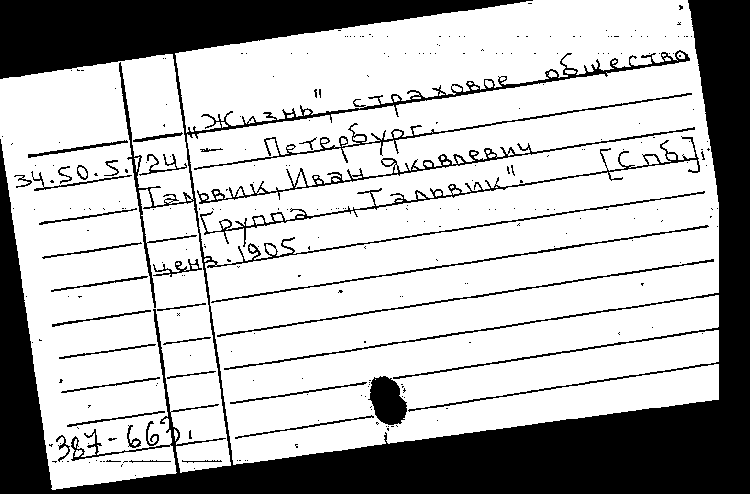 „Жизнь", страховое общество
34.50.5.724. — Петербург.
Тальвик, Иван Яковлевич
Группа „Тальвик". [Спб.],
ценз. 1905.
387-663.